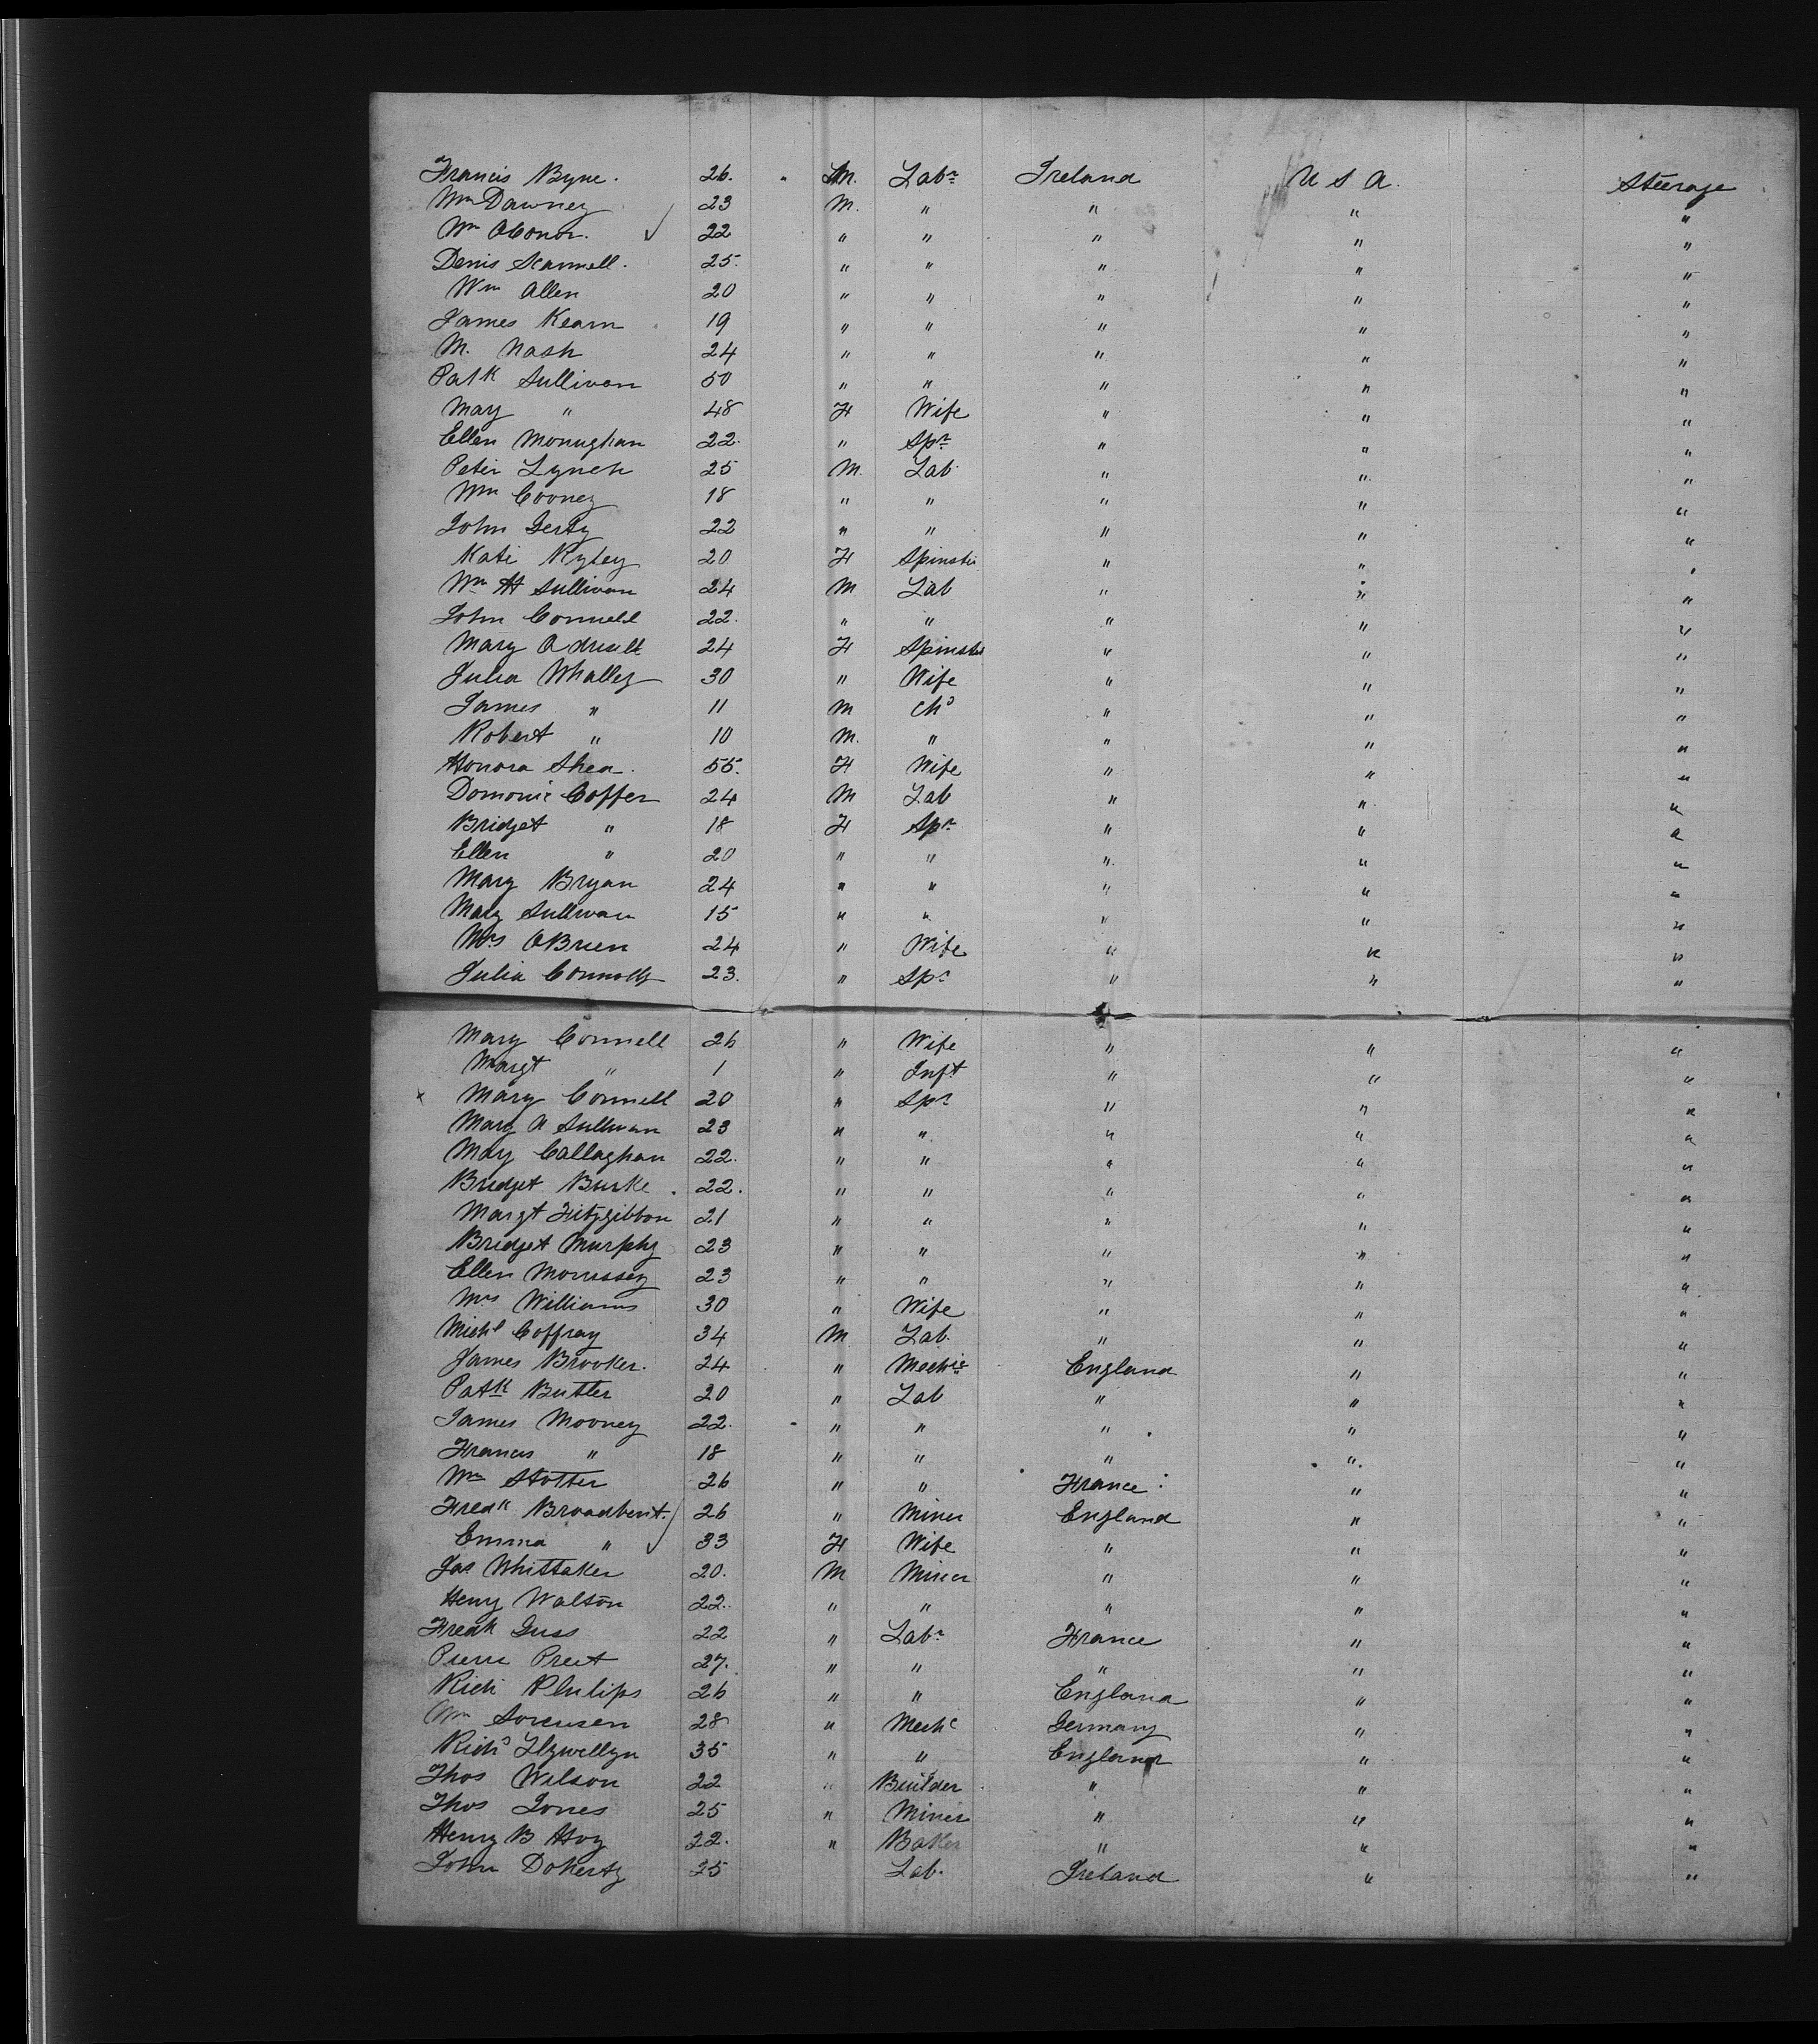 Francis Byne. 26. " M. Labr Ireland U S A. Steerage
Wm Dawney 23 M. " " " "
Wm OConor. ✓ 22 " " " " "
Denis Scannell. 25. " " " " "
Wm Allen 20 " " " " "
James Kearn 19 " " " " "
M. Nash 24 " " " " "
Patk Sullivan 50 " " " " "
May " 48 F Wife " " "
Ellen Monughan 22. " Spr " " "
Peter Lynch 25 M. Lab. " " "
Wm Cooney 18 " " " " "
John Gerty 22 " " " " "
Kate Ryley 20 F Spinster " " "
Wm H Sullivan 24 M Lab " " "
John Connell 22. " " " " "
Mary 24 F Spinster " " "
Julia Whalley 30 " Wife " " "
James " 11 M Chd " " "
Robert " 10 M. " " " "
Honora Shea. 55. F Wife " " "
Domonic Coffer 24 M Lab " " "
Bridget " 18 F Spr " " "
Ellen " 20 " " " " "
Mary Bryan 24 " " " " "
Mary Sullivan 15 " " " " "
Mrs OBrien 24 " Wife " " "
Julia Connolly 23. " Spr " " "
Mary Connell 26 " Wife " " "
Margt " 1 " Inft " " "
x Mary Connell 20 " Spr " " "
Mary A Sullivan 23 " " " " "
May Callaghan 22. " " " " "
Bridget Burke. 22. " " " " "
Margt Fitzgibbon 21 " " " " "
Bridget Murphy 23 " " " " "
Ellen Morrissey 23 " " " " "
Mrs Williams 30 " Wife " " "
Michl Coffray 34 M Lab. " " "
James Brooker. 24 " Mechic England " "
Patk Butler 20 " Lab " " "
James Mooney 22. " " " " "
Francis " 18 " " " " "
Wm Stotter 26 " " France " "
Fredk Broadbent. 26 " Miner England " "
Emma " ✓ 33 F Wife " " "
Jas Whittaker 20. M Miner " " "
Henry Walton 22. " " " " "
Fredk Guss 22 " Labr France " "
Pierre Preet 27. " " " " "
Rich Philips 26 " " England " "
Wm Sorensen 28 " Mechc Germany " "
Richd Llywellyn 35 " " England " "
Thos Wilson 22 " Builder " " "
Thos Jones 25 " Miner " " "
Henry B Hoy 22. " Baker " " "
John Doherty 25 Lab. Ireland " "